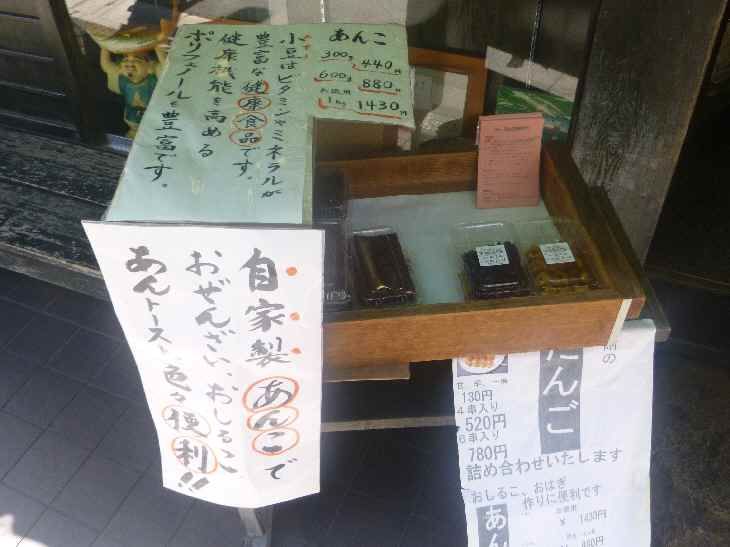 あんこ
300g 440円
600g 880円
お徳用
1kg 1430円
小豆はビタミンやミネラルが
豊富な健康食品です。
健康機能を高める
ポリフェノールも豊富です。
自家製あんこで
おぜんざい、おしるこ、
あんトースト、色々便利!!
だんご
130円
4串入り
520円
6串入り
780円
詰め合わせいたします
おしるこ、おはぎ
作りに便利です
あん
¥ 1430円